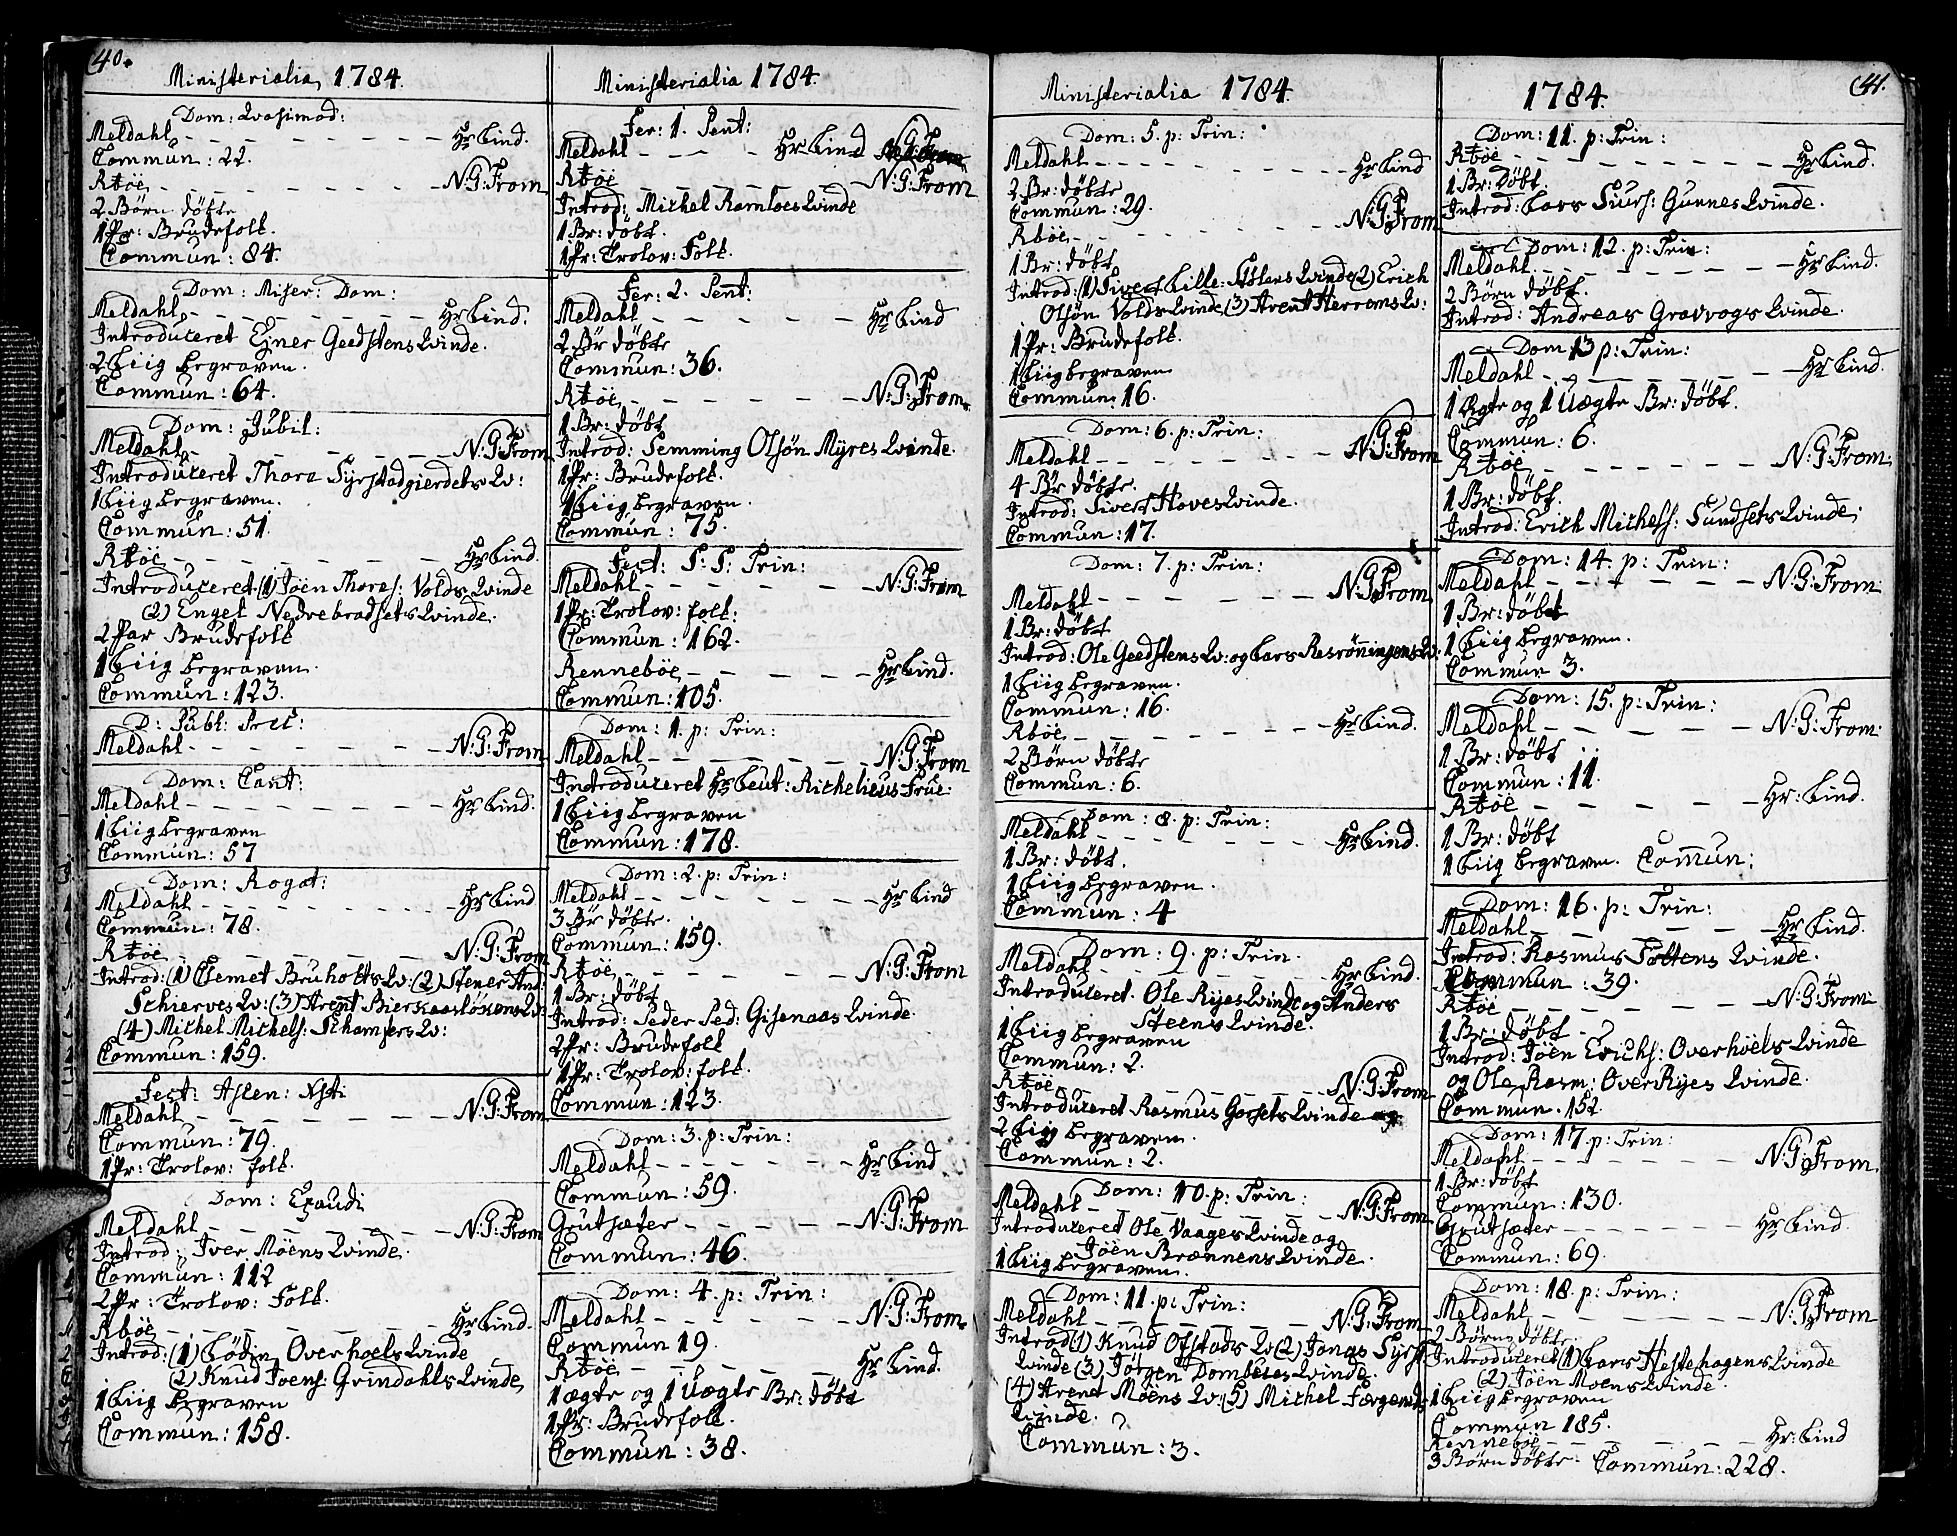 40.
Ministerialia 1784.
Dom: Qvasimod:
Meldahl - - - - - - Hr Lind.
Commun: 22.
Rbøe - - - - - - N:G:From
2 Børn døbte
1 Pr: Brudefolk.
Commun: 84.
Dom: Miser: Dom:
Meldahl - - - - - - Hr Lind.
Introduceret Ejner Geedstens Qvinde.
2 Liig begraven.
Commun: 64.
Dom: Jubil:
Meldahl - - - - - - N:G:From
Introduceret Thora Syrstadgierdets Qv:
1 Liig begraven.
Commun: 51.
Rbøe - - - - - - Hr Lind.
Introduceret (1) Joen Thores: Volds Qvinde
(2) Engel Nedrebradsets Qvinde.
2 Par Brudefolk
1 Liig begraven.
Commun: 123.
D: Publ: Prec:
Meldahl - - - - - - N:G:From
Dom: Cant:
Meldahl - - - - - - Hr Lind.
1 Liig begraven
Commun: 57
Dom: Rogat:
Meldahl - - - - - - Hr Lind
Commun: 78.
Rbøe - - - - - - N:G:From
Introd: (1) Clemet Bruholts Qv: (2) Stener And:
Schierves Qv: (3) Arent Bierkaasløkens Qv:
(4) Michel Michels: Schamfers Qv:
Commun: 159.
Fest: Ascen: Xsti
Meldahl - - - - - - N:G:From
Commun: 79.
1 Pr: Trolov: folk.
Dom: Exaudi
Meldahl - - - - - - N:G:From
Introd: Iver Moens Qvinde.
Commun: 112
2 Pr: Trolov: Folk.
Rbøe - - - - - - Hr Lind.
Introd: (1) Lødin Overhoels Qvinde
(2) Knud Joens: Grindahls Qvinde,
1 Liig begraven
Commun: 158.
Ministerialia 1784.
Fer: 1. Pent:
Meldahl - - - - Hr Lind
Rbøe - - - - - - N:G:From
Introd: Michel Ramloes Qvinde
1 Br: døbt.
1 Pr: Trolov: Folk.
Fer: 2. Pent:
Meldahl - - - - - - Hr Lind
2 Br døbte
Commun: 36.
Rbøe - - - - - - N:G:From.
1 Br: døbt
Introd: Semming Olsøn Myres Qvinde.
1 Pr: Brudefolk.
1 Liig begraven.
Commun: 75.
Fest: S: S: Trin:
Meldahl - - - - - - N:G:From
1 Pr: Trolov: folk:
Commun: 162.
Rennebøe - - - - - Hr Lind.
Commun: 105.
Dom: 1. p: Trin:
Meldahl - - - - - - N:G:From
Introduceret Hr Leut: Richelieus Frue:
1 Liig begraven
Commun: 178.
Dom: 2. p: Trin:
Meldahl - - - - - - Hr Lind
3 Br døbte.
Commun: 159.
Rbøe - - - - - - N:G:From
1 Br: døbt
Introd: Peder Ped: Gisenaas Qvinde.
2 Pr: Brudefolk
1 Pr: Trolov: folk.
Commun: 123.
Dom: 3. p: Trin:
Meldahl - - - - - - Hr Lind
Commun: 59.
Grutsæter - - - - - N:G:From
Commun: 46.
Dom: 4. p: Trin:
Meldahl - - - - - - N:G:From.
Commun 19.
Rbøe - - - - - - Hr Lind.
1 ægte og 1 Uægte Br: døbt
1 Pr: Brudefolk.
Commun: 38.
Ministerialia 1784.
Dom: 5. p: Trin:
Meldahl - - - - - - Hr Lind
2 Br: døbte
Commun: 29.
Rbøe - - - - - - N:G:From
1 Br: døbt
Introd: (1) Sivert Lille: Qvinde (2) Erich
Olsøn Volds Qvinde (3) Arent Herrems Qv:
1 Pr: Brudefolk.
1 Liig begraven
Commun: 16.
Dom: 6. p: Trin:
Meldahl - - - - - - N:G:From
4 Br døbte.
Introd: Sivert Hoves Qvinde.
Commun: 17.
Dom: 7. p: Trin:
Meldahl - - - - - - N:G:From
1 Br: døbt
Introd: Ole Geedstens Qv: og Lars Resrønningens Qv:
1 Liig begraven.
Commun: 16.
Rbøe - - - - - - Hr Lind.
2 Børn døbte
Commun: 6.
Dom: 8. p: Trin:
Meldahl - - - - - - Hr Lind.
1 Br: døbt.
1 Liig begraven.
Commun: 4
Dom: 9. p: Trin.
Meldahl - - - - - - Hr Lind.
Introduceret. Ole Ryes Qvinde og Anders
Steens Qvinde.
1 Liig begraven
Commun: 2.
Rbøe - - - - - - N:G:From
Introduceret Rasmus Gorsets Qvinde
2 Liig begraven.
Commun: 2.
Dom: 10. p: Trin:
Meldahl - - - - - - N:G:From
Introduceret Ole Vaages Qvinde og
Joen Brænnens Qvinde.
1 Liig begraven.
Dom: 11. p: Trin:
Meldahl - - - - - - N:G:From
Introd (1) Knud Ofstads Qv (2) Jonas Syrst:
Qvinde (3) Jørgen Dombues Qvinde.
(4) Arent Moens Qv: (5) Michel Færgem:
Qvinde.
Commun: 3.
1784.
41.
Dom: 11. p: Trin:
Rbøe - - - - - - Hr Lind.
1 Br: døbt
Introd: Lars Siurs: Gunnes Qvinde.
Dom: 12. p: Trin:
Meldahl - - - - - - Hr Lind.
2 Børn døbt.
Introd: Andreas Gravvogs Qvinde.
Dom 13 p: Trin:
Meldahl - - - - - - Hr Lind.
1 Ægte og 1 Uægte Br: døbt.
Commun: 6.
Rbøe - - - - - - N:G:From:
1 Br: døbt.
Introd: Erich Michels: Sundsets Qvinde.
Dom: 14. p: Trin:
Meldahl - - - - - - N:G:From:
1 Br: døbt
1 Liig begraven.
Commun 3.
Dom: 15. p: Trin:
Meldahl - - - - - - N:G:From:
1 Br: døbt
Commun: 11.
Rbøe - - - - - - Hr: Lind.
1 Br: døbt
1 Liig begraven. Comun:
Dom: 16. p: Trin:
Meldahl - - - - - - Hr Lind.
Introd: Rasmus Tøttens Qvinde.
Commun: 39.
Rbøe - - - - - - N:G:From
1 Br: døbt
Introd: Joen Erichs: Overhoels Qvinde
og Ole Rasm: Over Ryes Qvinde.
Commun: 152
Dom: 17. p: Trin:
Meldahl - - - - - - N:G:From.
1 Br: døbt
Commun: 130.
Grutsæter - - - - - Hr Lind
Commun: 69.
Dom: 18. p: Trin:
Meldahl - - - - - - N:G:From
2 Børn døbte
Introduceret (1) Lars Hestehagens Qvinde
(2) Joen Moens Qvinde.
1 Liig begraven
Commun 185.
Rennebøe - - - - - Hr: Lind
3 Børn døbte. Commun: 228.